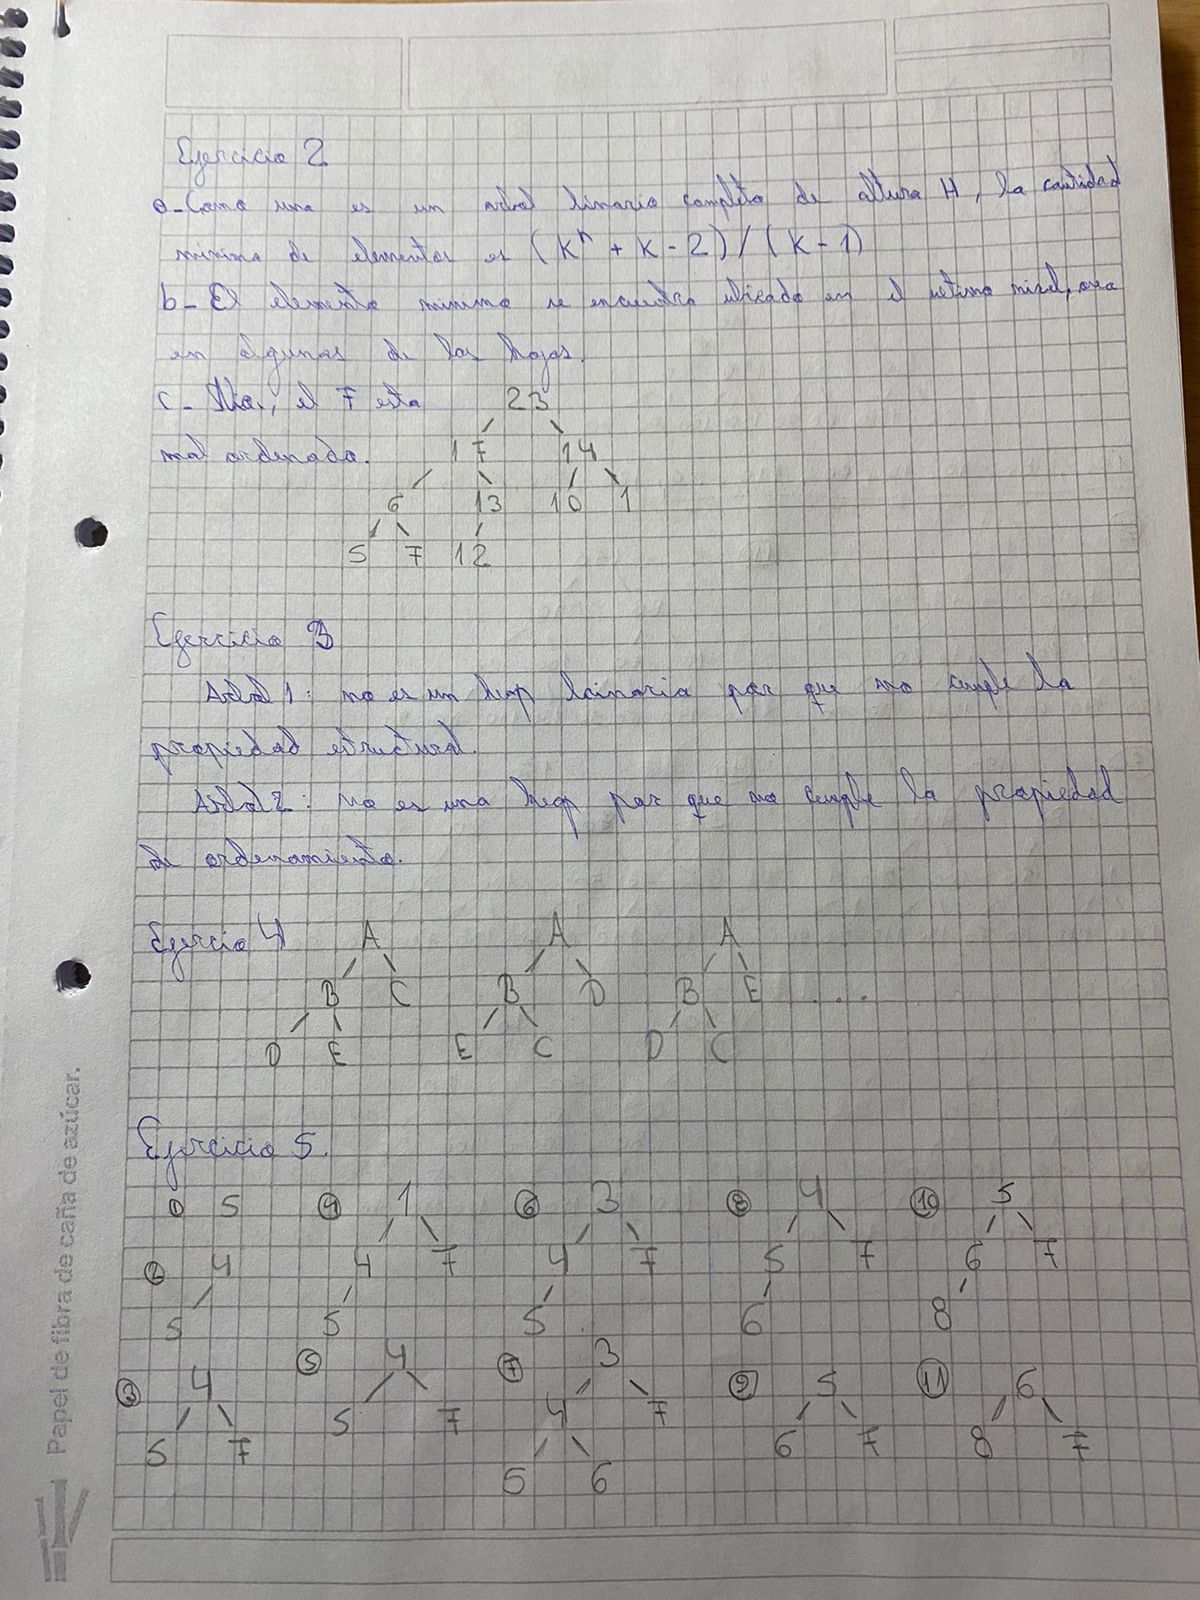 Ejercicio 2
a-Como una es un arbol binario completo de altura H, la cantidad
minima de elementos es (K^h + K - 2) / (K - 1)
b- El elemento minimo se encuentra ubicado en el ultimo nivel, osea
en algunas de las hojas.
c- No, el 7 esta
23
mal ordenado.
17 14
6 13 10 1
5 7 12
Ejercicio 3
Arbol 1: no es un heap binaria por que no cumple la
propiedad estructural.
Arbol 2: no es una heap por que no cumple la propiedad
de ordenamiento.
Ejercio 4
A A A
B C B D B E ....
D E E C D C
Ejercicio 5.
① 5 ④ 1 ⑥ 3 ⑧ 4 ⑩ 5
② 4 4 7 4 7 5 7 6 7
5 5 5 6 8
③ 4 ⑤ 4 ⑦ 3 ⑨ 5 ⑪ 6
5 7 5 7 4 7 6 7 8 7
5 6
Papel de fibra de caña de azúcar.